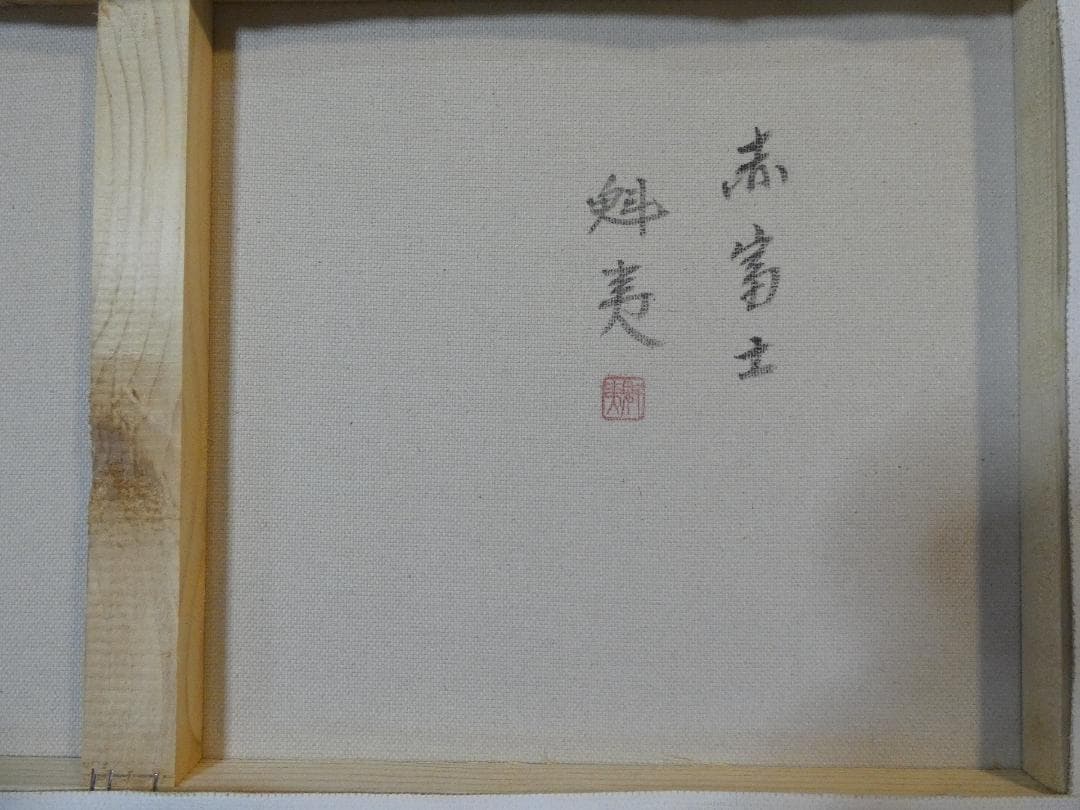 赤富士
魁夷